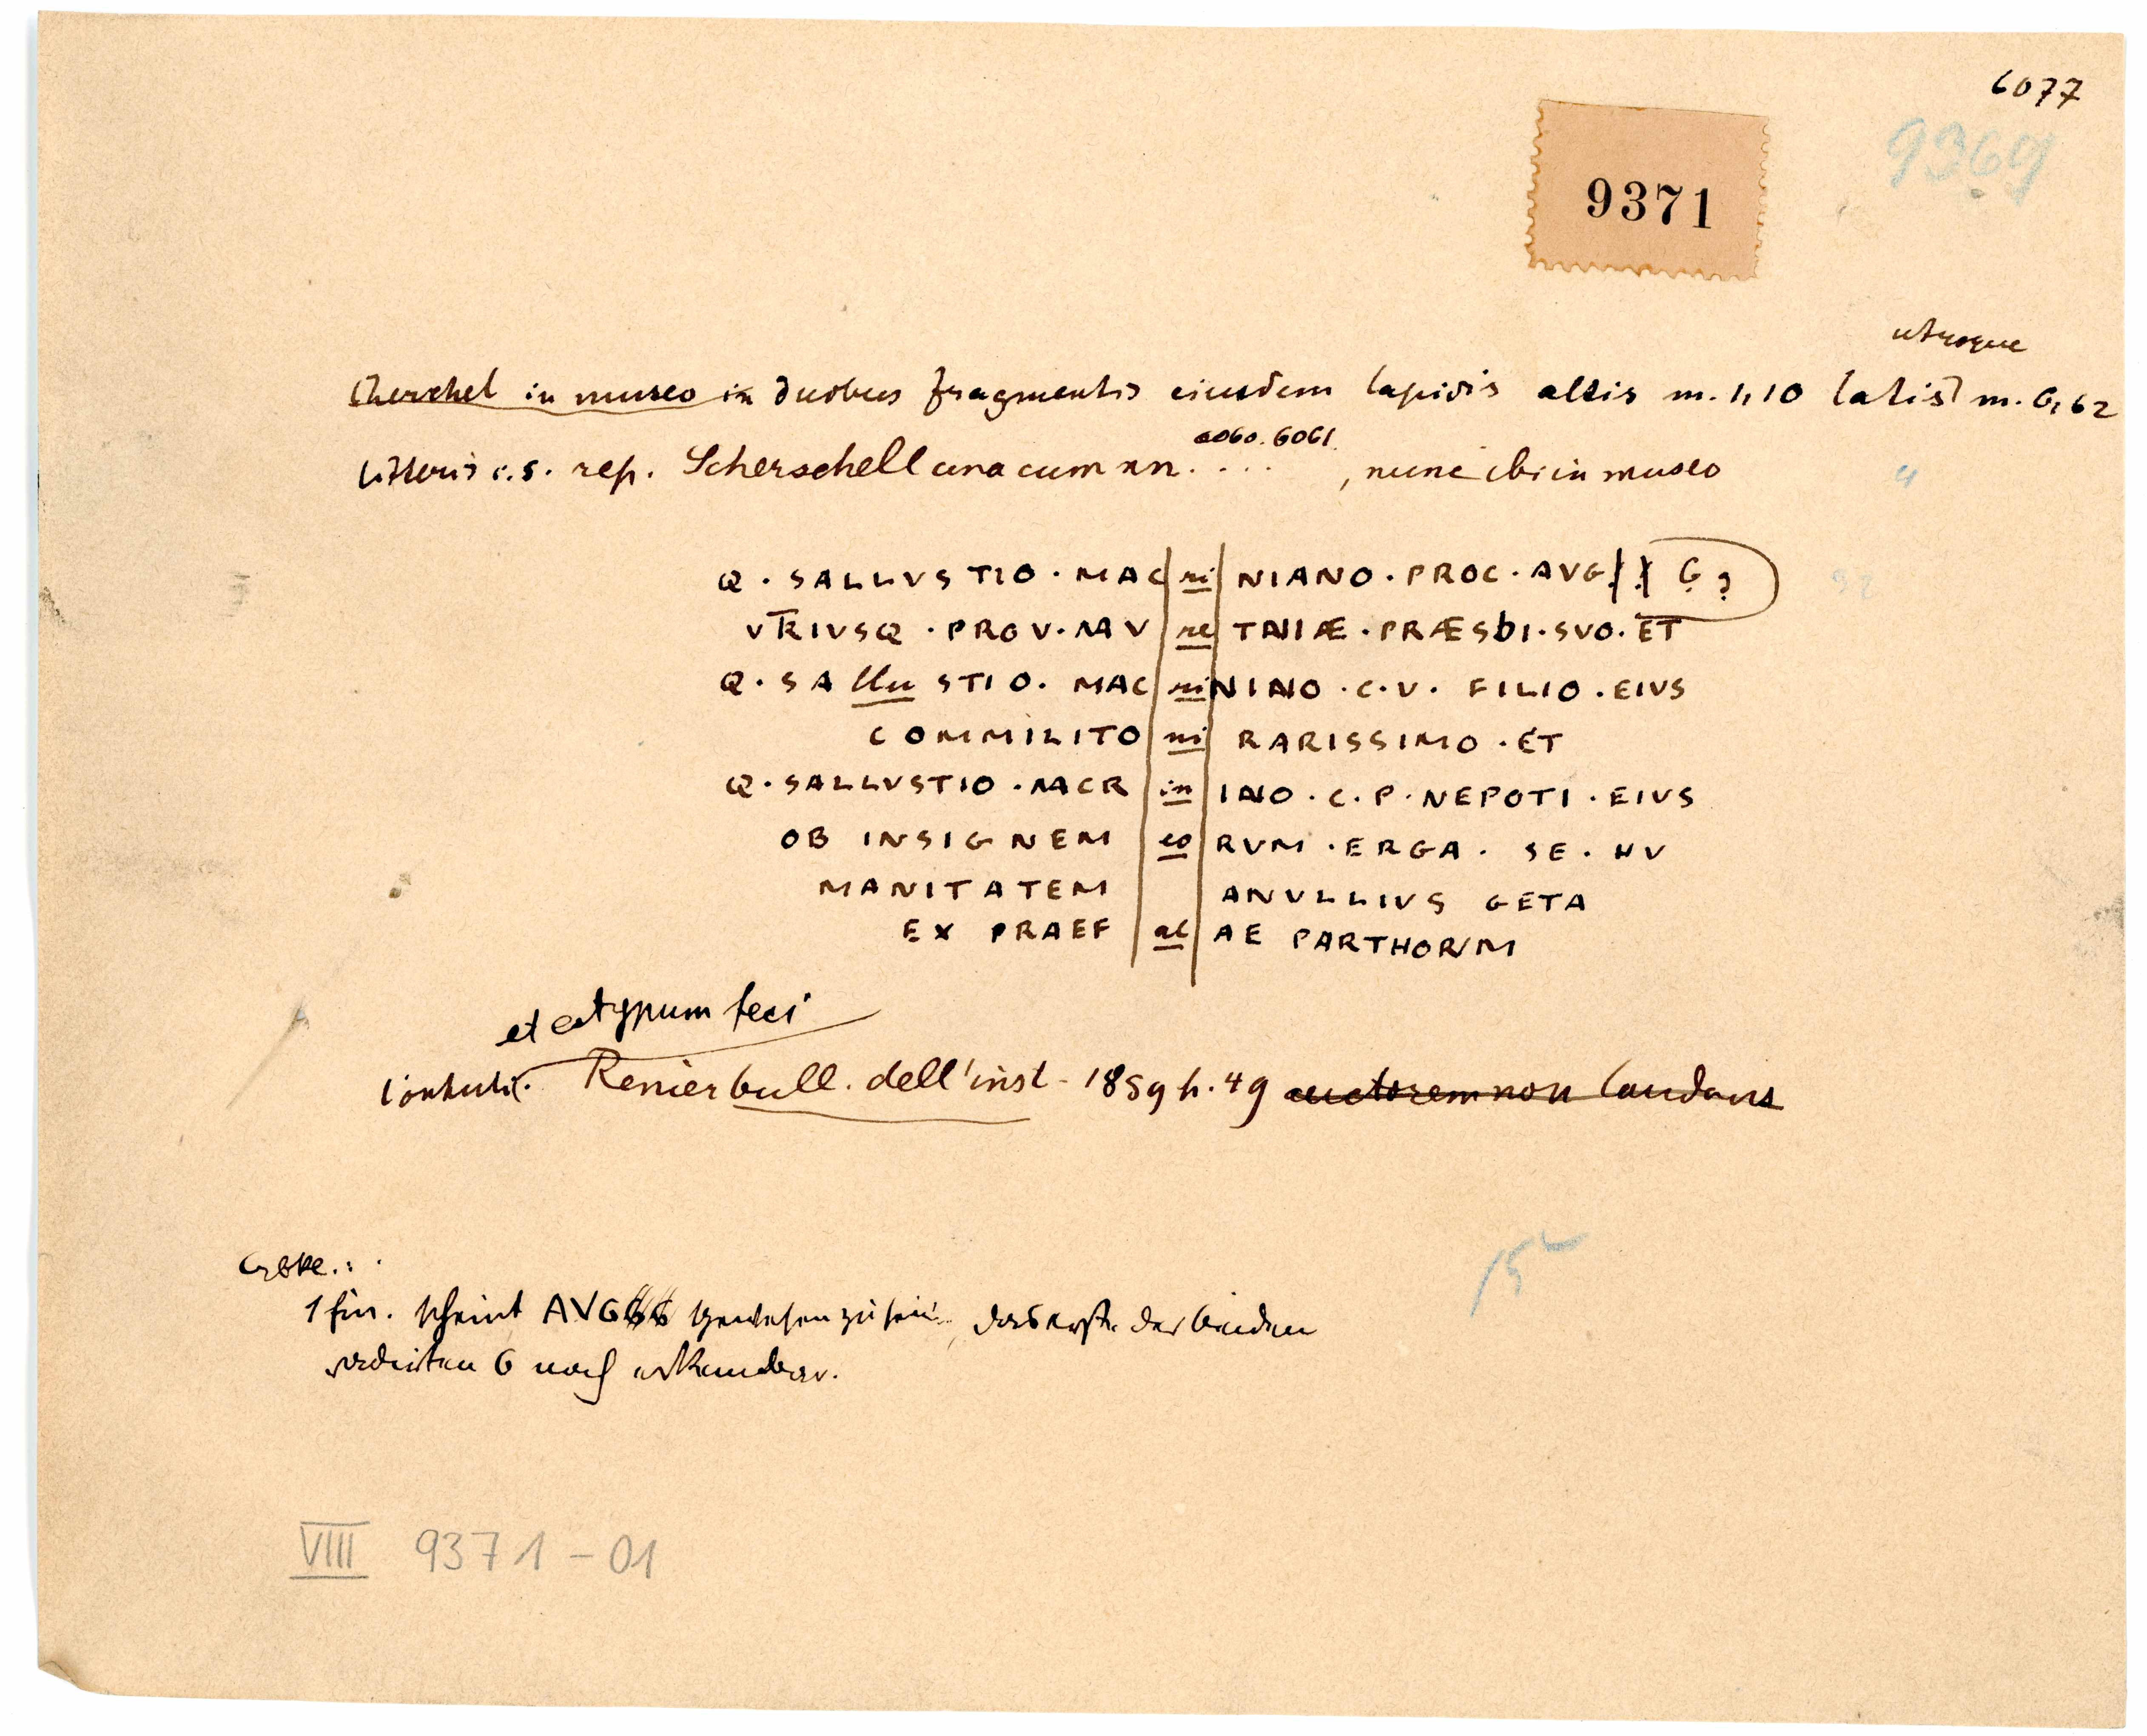 6077
9369
9371
utroque
Cherchel in museo in duobus fragmentis eiusdem lapidis altis m. 1,10 latis m. 0,62
6060. 6061.
litteris c.s. rep. Scherschell una cum nn. . . . , nunc ibi in museo
Q · SALLVSTIO · MAC ri NIANO · PROC · AVG G ?
VTRIVSQ · PROV · MAV re TANIAE · PRAESIDI · SVO · ET
Q · SA llu STIO · MAC ri NINO · C · V · FILIO · EIVS
COMMILITO ni RARISSIMO · ET
Q · SALLVSTIO · MACR in IANO · C · P · NEPOTI · EIVS
OB INSIGNEM eo RVM · ERGA · SE · HV
MANITATEM ANVLLIVS GETA
EX PRAEF al AE PARTHORVM
et ectypum feci
Contuli. Renier bull. dell'inst - 1859 p. 49 auctorem non laudans
15
1 fin. scheint AVGGG gewesen zu sein, das erste der beiden
radirten G noch erkennbar.
VIII 9371 - 01